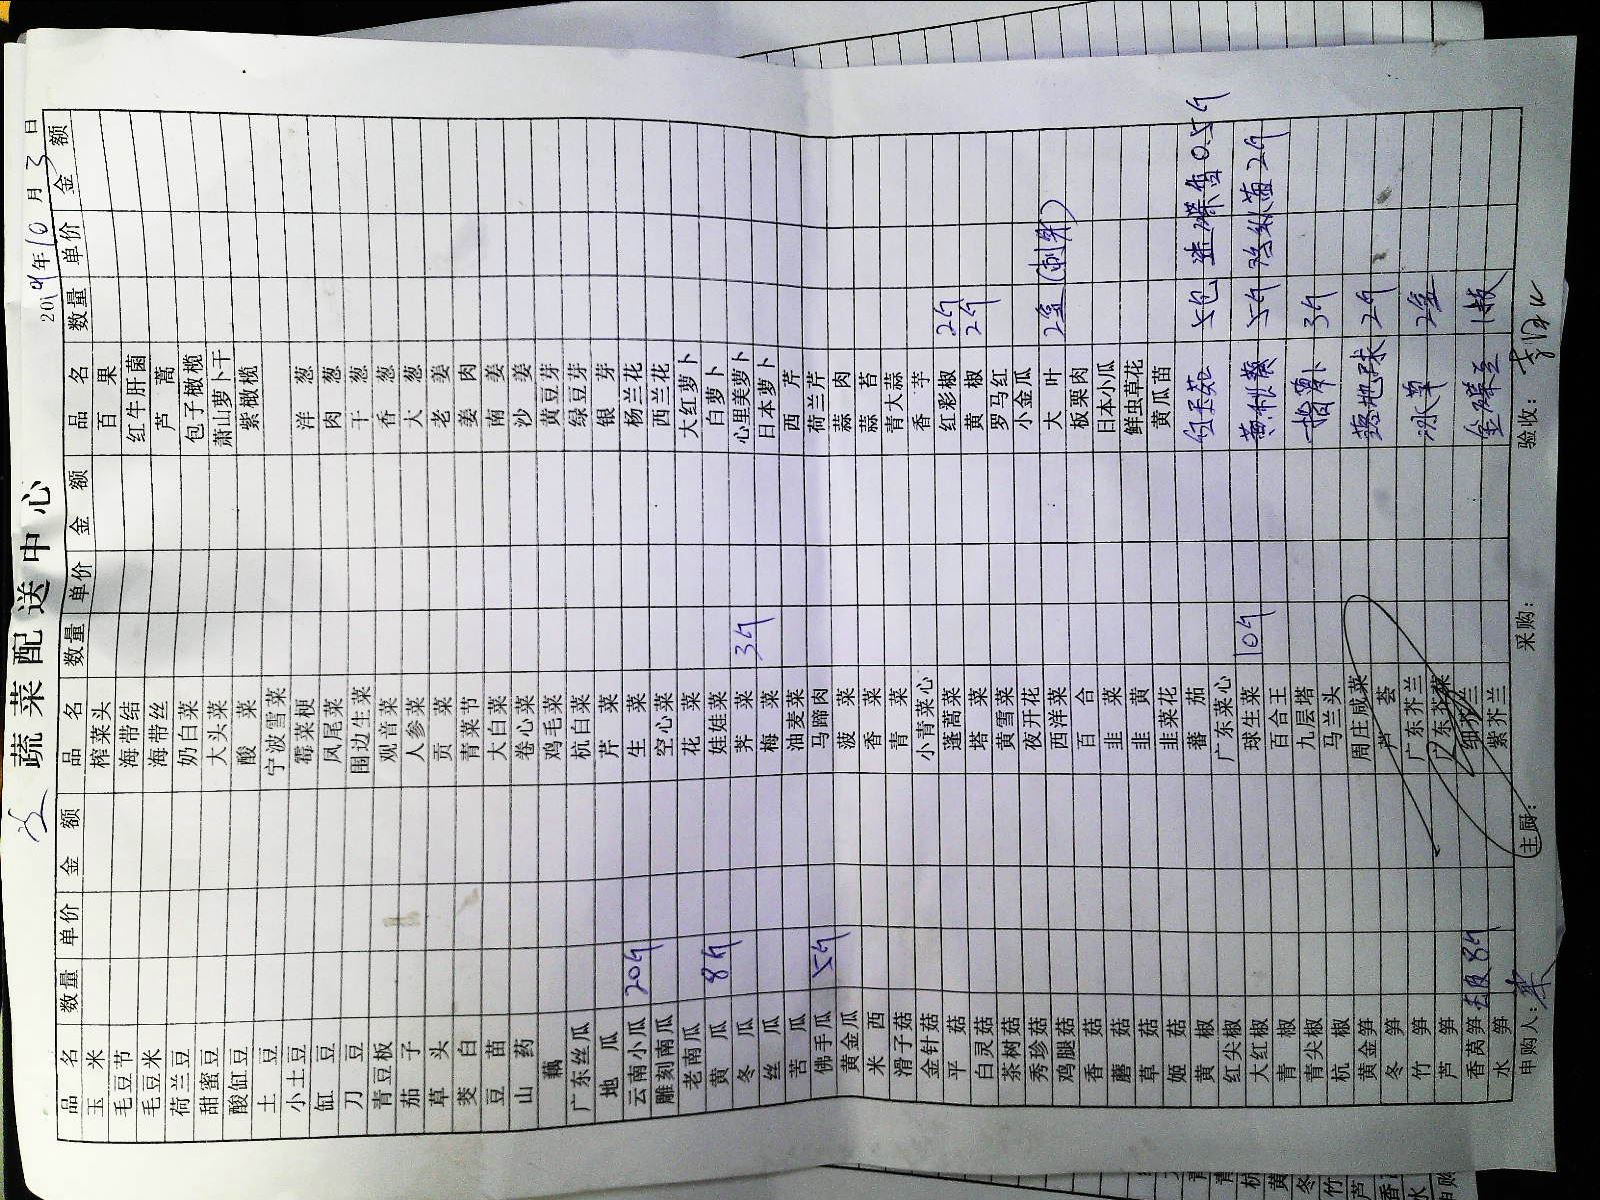 蔬菜配送中心
2019年10月3日
品名 数量 单价 金额 品名 数量 单价 金额 品名 数量 单价 金额
玉米 榨菜头 百果
毛豆节 海带结 红牛肝菌
毛豆米 海带丝 芦蒿
荷兰豆 奶白菜 包子橄榄
甜蜜豆 大头菜 萧山萝卜干
酸缸豆 酸菜 紫橄榄
土豆 宁波雪菜
小土豆 霉菜梗 洋葱
缸豆 凤尾菜 肉葱
刀豆 围边生菜 干葱
青豆板 观音菜 香葱
茄子 人参菜 大葱
草头 贡菜 老姜
茭白 青菜节 姜肉
豆苗 大白菜 南姜
山药 卷心菜 沙姜
藕 鸡毛菜 黄豆芽
广东丝瓜 杭白菜 绿豆芽
地瓜 芹菜 银芽
云南小瓜 20斤 生菜 杨兰花
雕刻南瓜 空心菜 西兰花
老南瓜 花菜 大红萝卜
黄瓜 8斤 娃娃菜 白萝卜
冬瓜 荠菜 3斤 心里美萝卜
丝瓜 梅菜 日本萝卜
苦瓜 油麦菜 西芹
佛手瓜 5斤 马蹄肉 荷兰芹
黄金瓜 菠菜 蒜肉
米西 香菜 蒜苔
滑子菇 青菜 青大蒜
金针菇 小青菜心 香芋
平菇 蓬蒿菜 红彩椒 2斤
白灵菇 塔菜 黄椒 2斤
茶树菇 黄雪菜 罗马红
秀珍菇 夜开花 小金瓜
鸡腿菇 西洋菜 大叶 2盒(刺身)
香菇 百合 板栗肉
蘑菇 韭菜 日本小瓜
草菇 韭黄 鲜虫草花
姬菇 韭菜花 黄瓜苗
黄椒 蕃茄
红尖椒 广东菜心 5包 迷迭香0.5斤
大红椒 球生菜 10斤 黄秋葵 5斤 鸡枞菌2斤
青椒 百合王
青尖椒 九层塔 指萝卜 3斤
杭椒 马兰头
黄金笋 周庄咸菜 2斤
冬笋 芦荟
竹笋 广东芥兰 冰草 2盒
芦笋 广东芥菜
香莴笋 去皮8斤 细芥兰
水笋 紫芥兰 1板
申购人: 主厨: 采购: 验收: